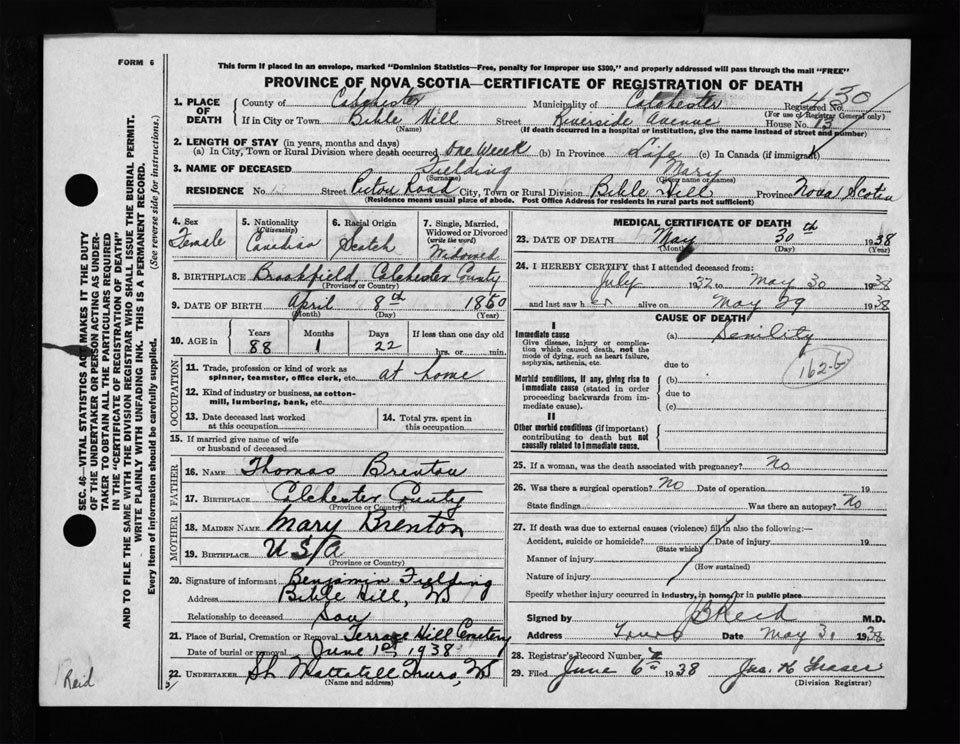 FORM 6
This form if placed in an envelope, marked "Dominion Statistics—Free, penalty for improper use $300," and properly addressed will pass through the mail "FREE"
PROVINCE OF NOVA SCOTIA—CERTIFICATE OF REGISTRATION OF DEATH
1. PLACE OF DEATH County of Colchester Municipality of Colchester Registered No. 430
(For use of Registrar General only)
If in City or Town Bible Hill Street Riverside Avenue House No. 13
(Name) (If death occurred in a hospital or institution, give the name instead of street and number)
2. LENGTH OF STAY (in years, months and days)
(a) In City, Town or Rural Division where death occurred One Week (b) In Province Life (c) In Canada (if immigrant)
3. NAME OF DECEASED Fielding Mary
(Surname) (Given name or names)
RESIDENCE No. Street Pictou Road City, Town or Rural Division Bible Hill Province Nova Scotia
(Residence means usual place of abode. Post Office Address for residents in rural parts not sufficient)
4. Sex Female
5. Nationality (Citizenship) Canadian
6. Racial Origin Scotch
7. Single, Married, Widowed or Divorced (write the word) Widowed
8. BIRTHPLACE Brookfield Colchester County
(Province or Country)
9. DATE OF BIRTH April 8th 1850
(Month) (Day) (Year)
10. AGE in Years 88 Months 1 Days 22 If less than one day old hrs. or min.
OCCUPATION
11. Trade, profession or kind of work as spinner, teamster, office clerk, etc. at home
12. Kind of industry or business, as cotton-mill, lumbering, bank, etc.
13. Date deceased last worked at this occupation
14. Total yrs. spent in this occupation
15. If married give name of wife or husband of deceased
FATHER
16. NAME Thomas Brenton
17. BIRTHPLACE Colchester County
(Province or Country)
MOTHER
18. MAIDEN NAME Mary Brenton
19. BIRTHPLACE U S A
(Province or Country)
20. Signature of informant Benjamin Fielding
Address Bible Hill, NS
Relationship to deceased Son
21. Place of Burial, Cremation or Removal Terrace Hill Cemetery
Date of burial or removal June 1st 1938
22. UNDERTAKER Mattatall Truro, NS
(Name and address)
MEDICAL CERTIFICATE OF DEATH
23. DATE OF DEATH May 30th 1938
(Month) (Day) (Year)
24. I HEREBY CERTIFY that I attended deceased from:
July 1937 to May 30 1938
and last saw her alive on May 29 1938
CAUSE OF DEATH
I
Immediate cause (a) Senility
Give disease, injury or complication which caused death, not the mode of dying, such as heart failure, asphyxia, asthenia, etc.
due to
162-b
Morbid conditions, if any, giving rise to immediate cause (stated in order proceeding backwards from immediate cause).
(b)
due to
(c)
II
Other morbid conditions (if important) contributing to death but not causally related to immediate cause.
25. If a woman, was the death associated with pregnancy? No
26. Was there a surgical operation? No Date of operation 19
State findings Was there an autopsy? No
27. If death was due to external causes (violence) fill in also the following:—
Accident, suicide or homicide? Date of injury 19
(State which)
Manner of injury
(How sustained)
Nature of injury
Specify whether injury occurred in industry, in home, or in public place
Signed by Reid M.D.
Address Truro Date May 31 1938
28. Registrar's Record Number
29. Filed June 6th 1938 Jas. H Fraser
(Division Registrar)
SEC. 46—VITAL STATISTICS ACT MAKES IT THE DUTY
OF THE UNDERTAKER OR PERSON ACTING AS UNDER-
TAKER TO OBTAIN ALL THE PARTICULARS REQUIRED
IN THE "CERTIFICATE OF REGISTRATION OF DEATH"
AND TO FILE THE SAME WITH THE DIVISION REGISTRAR WHO SHALL ISSUE THE BURIAL PERMIT.
WRITE PLAINLY WITH UNFADING INK. THIS IS A PERMANENT RECORD.
Every item of information should be carefully supplied. (See reverse side for instructions.)
Reid